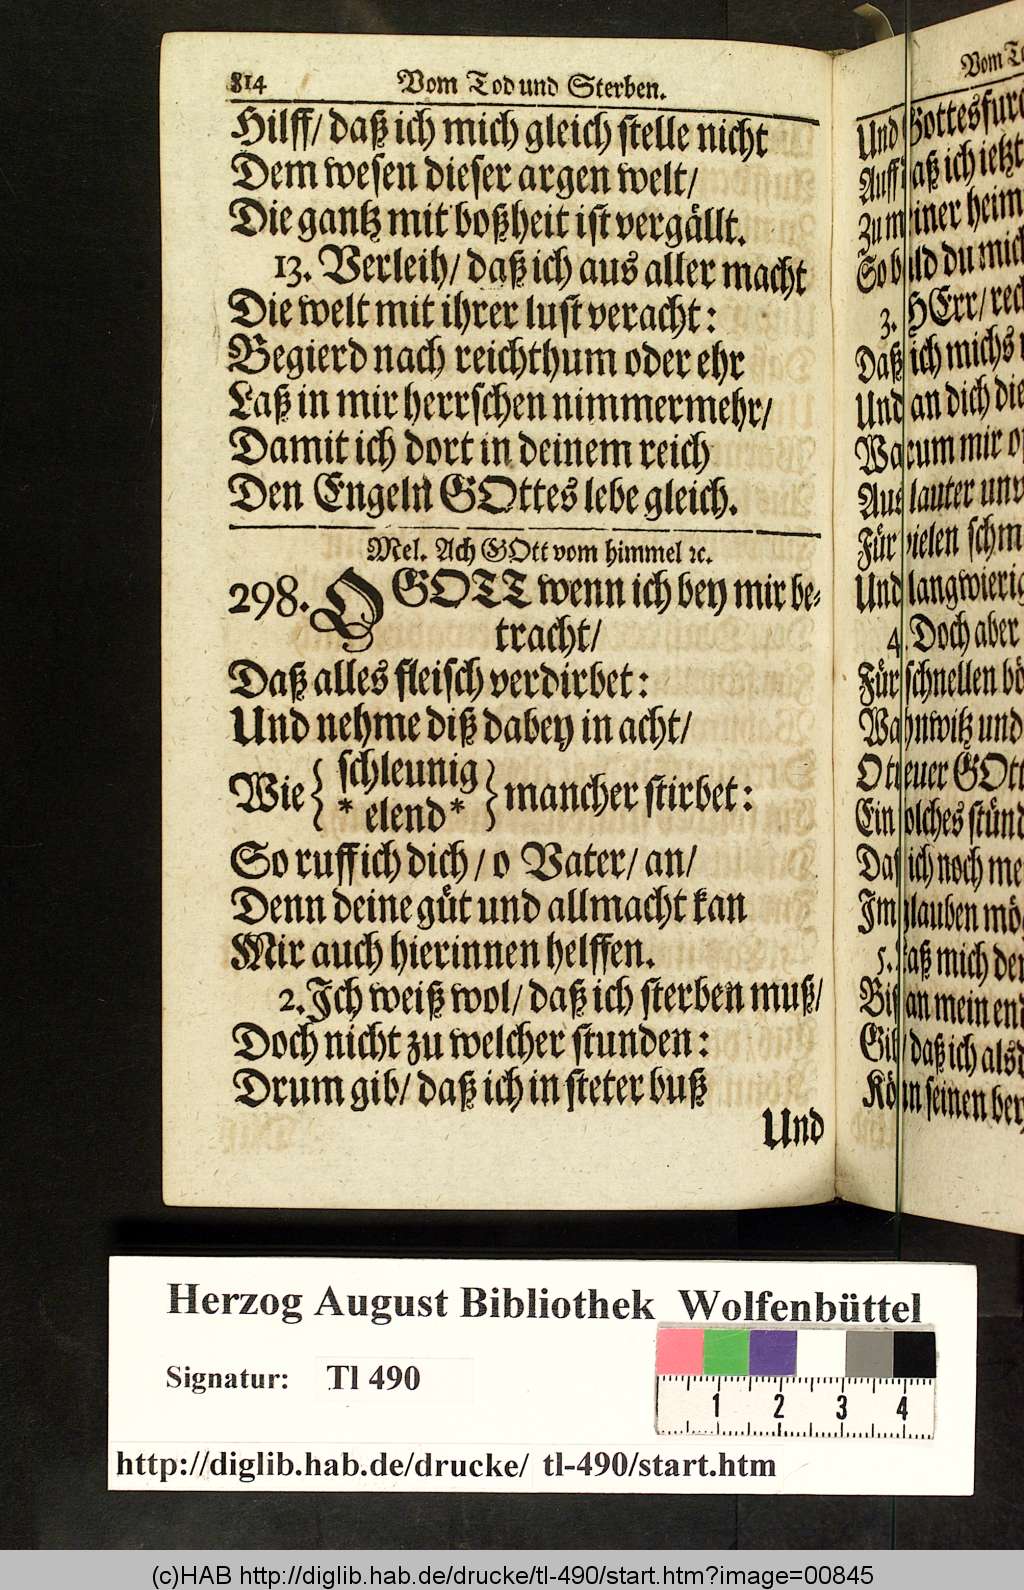 814 Vom Tod und Sterben.
Hilff/ daß ich mich gleich stelle nicht
Dem wesen dieser argen welt/
Die gantz mit boßheit ist vergällt.
13. Verleih/ daß ich aus aller macht
Die welt mit ihrer lust veracht:
Begierd nach reichthum oder ehr
Laß in mir herrschen nimmermehr/
Damit ich dort in deinem reich
Den Engeln GOttes lebe gleich.
Mel. Ach GOtt vom himmel ꝛc.
298. O GOTT wenn ich bey mir be-
tracht/
Daß alles fleisch verdirbet:
Und nehme diß dabey in acht/
Wie { schleunig
* elend * } mancher stirbet:
So ruff ich dich/ o Vater/ an/
Denn deine güt und allmacht kan
Mir auch hierinnen helffen.
2. Ich weiß wol/ daß ich sterben muß/
Doch nicht zu welcher stunden:
Drum gib/ daß ich in steter buß
Und
Vom
Und Gottesfur
daß ich ietzt
heim
du mich
3. HErr/ rec
Daß ich michs
Und an dich die
mir
Aus lauter
Für vielen schm
Und langwierig
4. Doch aber
Für schnellen bö
und
GOtt
solches stünd
ich noch me
Im glauben mö
5. Laß mich der
an mein end
daß ich alsd
seinen
Herzog August Bibliothek Wolfenbüttel
Signatur: Tl 490
1 2 3 4
http://diglib.hab.de/drucke/ tl-490/start.htm
(c)HAB http://diglib.hab.de/drucke/tl-490/start.htm?image=00845